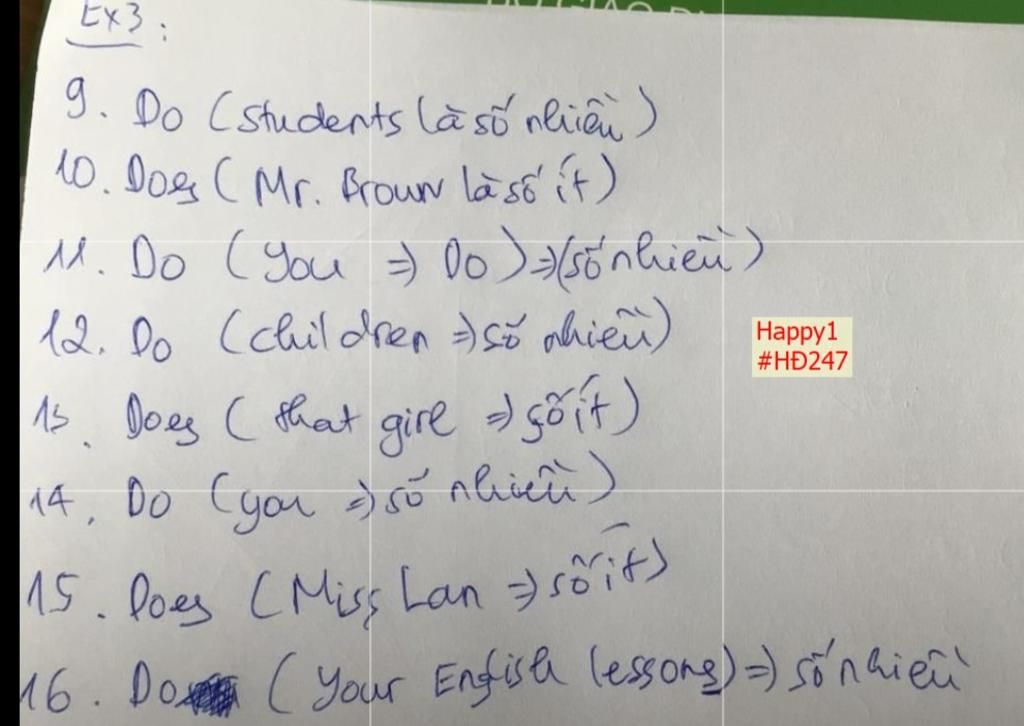 Ex3:
9. Do (students là số nhiều)
10. Does (Mr. Brown là số ít)
11. Do (you => Do) => (số nhiều)
12. Do (children => số nhiều)
Happy1
#HĐ247
13. Does (that girl => số ít)
14. Do (you => số nhiều)
15. Does (Miss Lan => số ít)
16. Do (your English lessons) => số nhiều